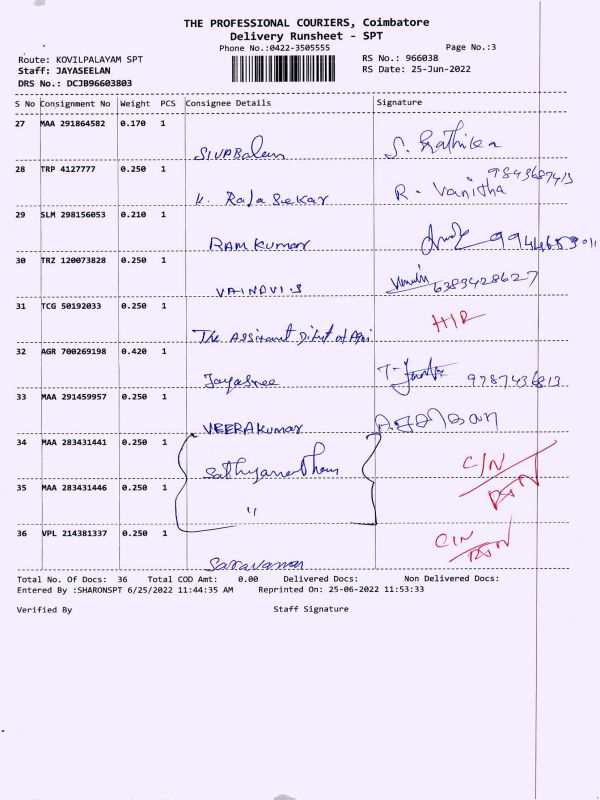 THE PROFESSIONAL COURIERS, Coimbatore
Delivery Runsheet - SPT
Phone No.:0422-3505555 Page No.:3
Route: KOVILPALAYAM SPT RS No.: 966038
Staff: JAYASEELAN RS Date: 25-Jun-2022
DRS No.: DCJB96603803
S No Consignment No Weight PCS Consignee Details Signature
27 MAA 291864582 0.170 1
SIVABalan S. Rathika
28 TRP 4127777 0.250 1 9843687413
K. RajaSekar R. Vanitha
29 SLM 298156053 0.210 1
RAM Kumar
30 TRZ 120073828 0.250 1
VAINAVI.S 6389428627
31 TCG 50192033 0.250 1
The Assistant of Agri
32 AGR 700269198 0.420 1
Jayasree 9787436813
33 MAA 291459957 0.250 1
VEERAKumar
34 MAA 283431441 0.250 1
C/N
35 MAA 283431446 0.250 1
"
36 VPL 214381337 0.250 1 C/N
Saravanan
Total No. Of Docs: 36 Total COD Amt: 0.00 Delivered Docs: Non Delivered Docs:
Entered By :SHARONSPT 6/25/2022 11:44:35 AM Reprinted On: 25-06-2022 11:53:33
Verified By Staff Signature